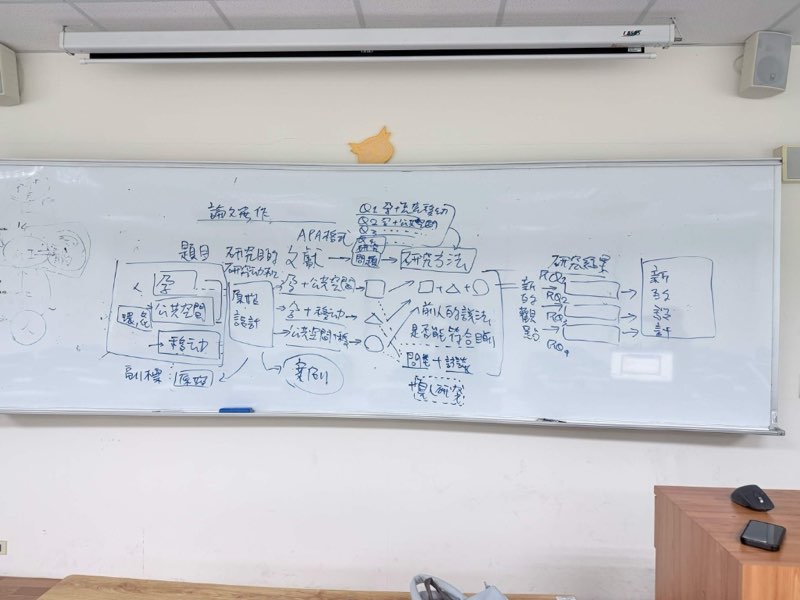 論文寫作
題目
研究目的
研究動機
APA格式
文獻
Q1 孕+公共移動
Q2 孕+公共空間
Q3
研究
問題
研究方法
研究結果
人
孕
公共空間
環境
移動
副標
原始
設計
孕+公共空間
孕+移動
公共空間+移
案例
□+△+○
前人的設計
是否能符合目的
問卷+訪談
新
的
觀
點
RQ1
RQ2
RQ3
RQ4
新
的
設
計